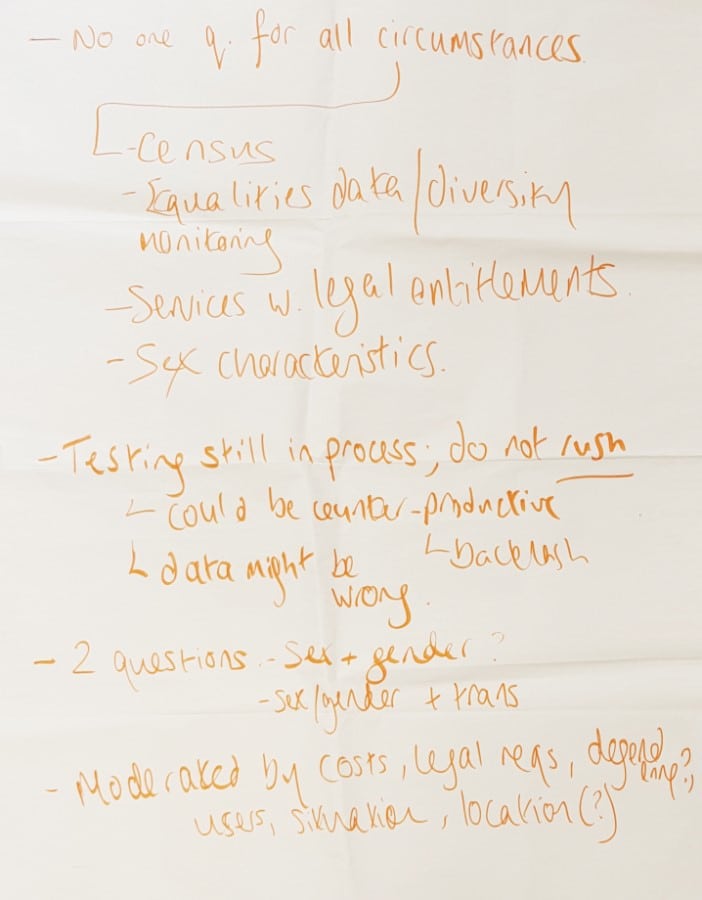 - No one q. for all circumstances.
- Census
- Equalities data / diversity
monitoring
- Services w. legal entitlements.
- Sex characteristics.
- Testing still in process; do not rush
could be counter-productive
backlash
data might be
wrong.
- 2 questions - sex + gender?
- sex/gender + trans
- Moderated by costs, legal reqs,
users, situation, location (?)